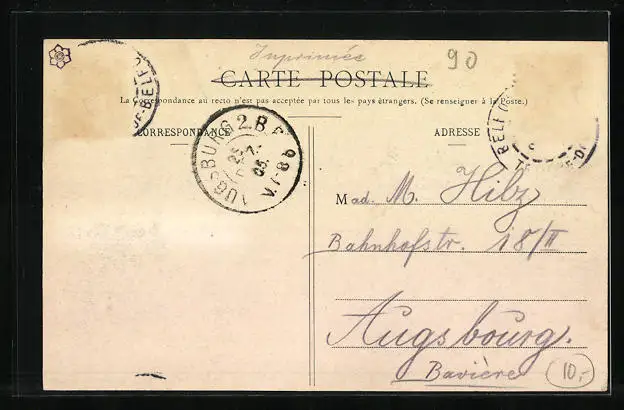 Inprimée
90
CARTE POSTALE
La Correspondance au recto n'est pas acceptée par tous les pays étrangers. (Se renseigner à la Poste.)
CORRESPONDANCE
ADRESSE
AUGSBURG 2.B.
25
7.
05.
V.7-8
Mad. M. Hilz
Bahnhofstr. 18/II
Augsbourg.
Bavière
10,-